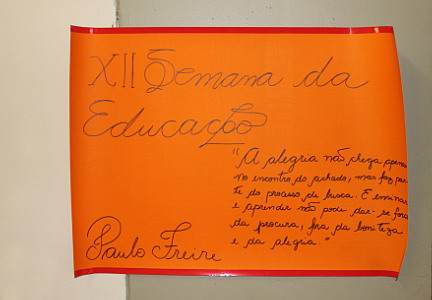 XII Semana da
Educação
"A alegria não chega apenas
no encontro do achado, mas faz par
te do processo de busca. E ensinar
e aprender não pode dar-se fora
da procura, fora da boniteza
e da alegria."
Paulo Freire